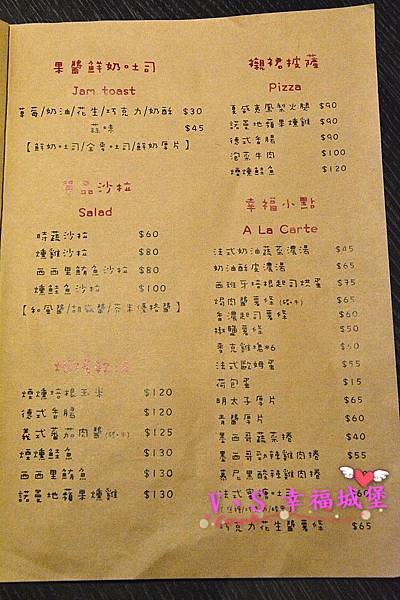 果醬鮮奶吐司
Jam toast
草莓/奶油/花生/巧克力/奶酥 $30
蒜味 $45
【鮮奶吐司/全麥吐司/鮮奶厚片】
單品沙拉
Salad
時蔬沙拉 $60
燻雞沙拉 $80
西西里鮪魚沙拉 $80
煙燻鮭魚沙拉 $100
煙燻培根玉米 $120
德式香腸 $120
義式番茄肉醬 $125
煙燻鮭魚 $130
西西里鮪魚 $130
諾曼地蘋果燻雞 $130
襯裙披薩
Pizza
夏威夷鳳梨火腿 $90
諾曼地蘋果燻雞 $90
德式香腸 $90
泡菜牛肉 $100
煙燻鮭魚 $120
幸福小點
A La Carte
法式奶油蔬菜濃湯 $45
奶油酥皮濃湯 $65
西班牙培根起司烘蛋 $75
焗肉醬薯條 $65
香濃起司薯條 $60
椒鹽薯條 $50
麥克雞塊*6 $30
法式歐姆蛋 $55
荷包蛋 $15
明太子厚片 $60
青醬厚片 $60
墨西哥蔬菜捲 $40
墨西哥勁辣雞肉捲 $55
慕尼黑酸辣雞肉捲
巧克力花生醬薯條 $65
V、S幸福城堡